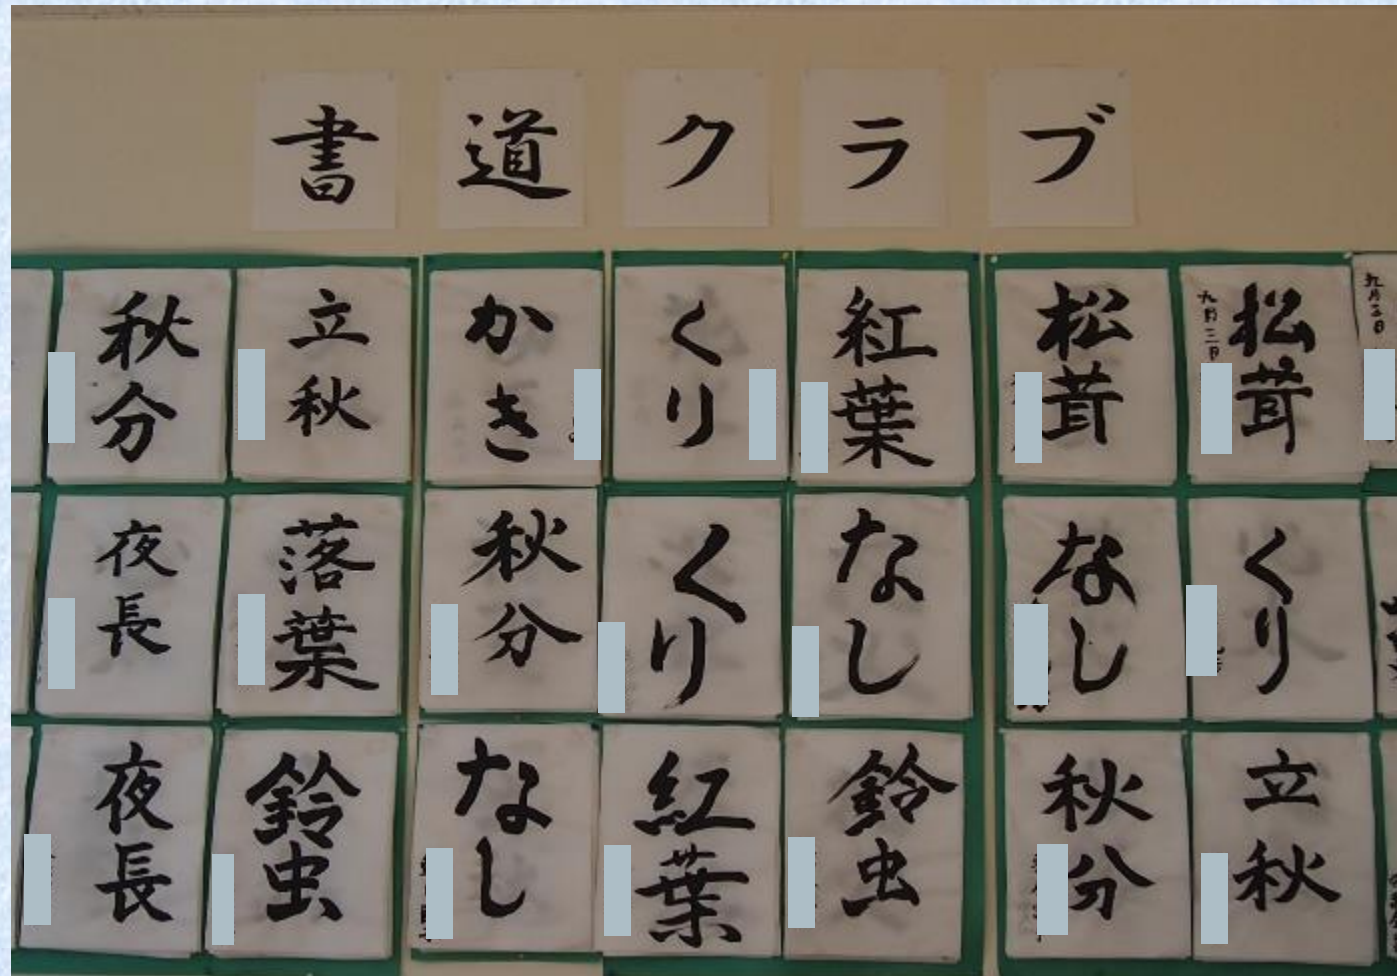 書道クラブ
秋分
立秋
かき
くり
紅葉
松茸
松茸
九月三日
夜長
落葉
秋分
くり
なし
なし
くり
夜長
鈴虫
なし
紅葉
鈴虫
秋分
立秋